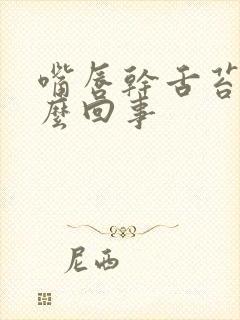 嘴唇幹舌苔
麼回事
尼西